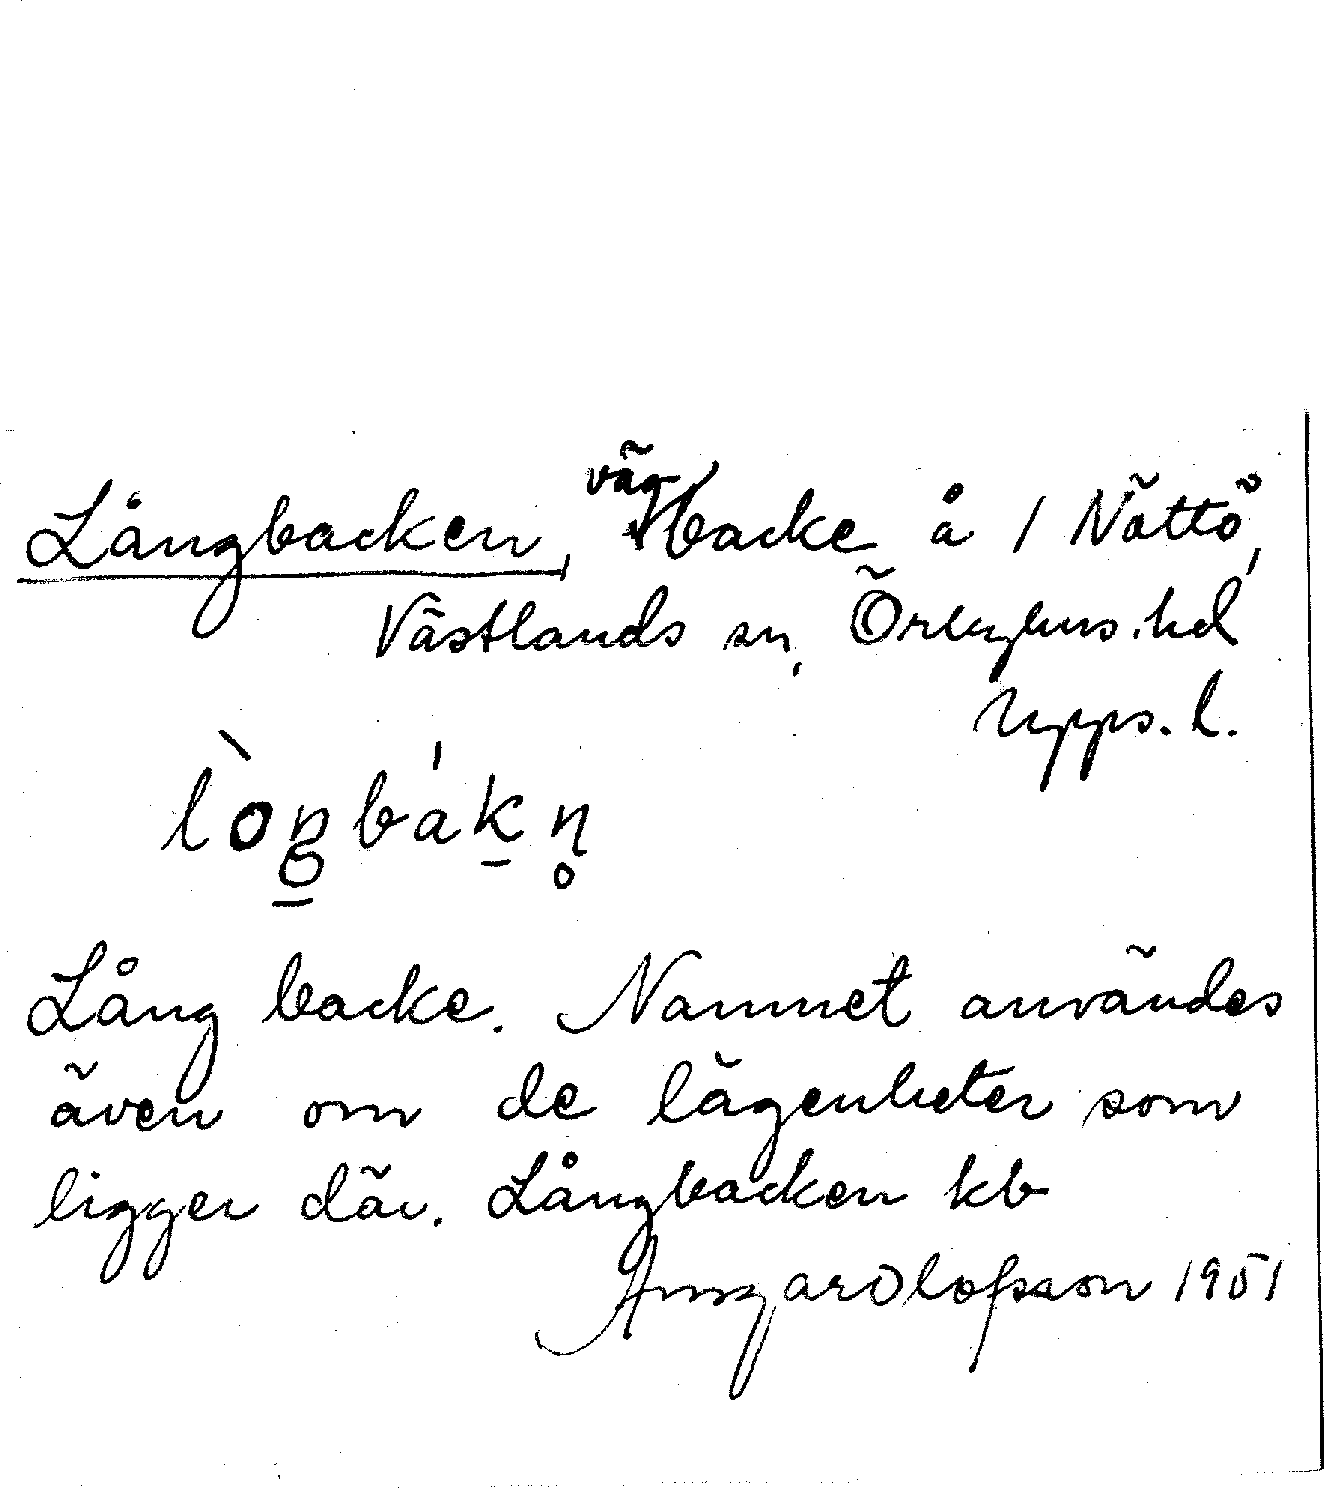 Långbacken, vägbacke å 1 Nöttö,
Västlands sn, Örbyhus. hd
Upps. l.
lògbákn̥
Lång backe. Namnet användes
även om de lägenheter som
ligger där. Långbacken kb
Ansgar Olofsson 1951